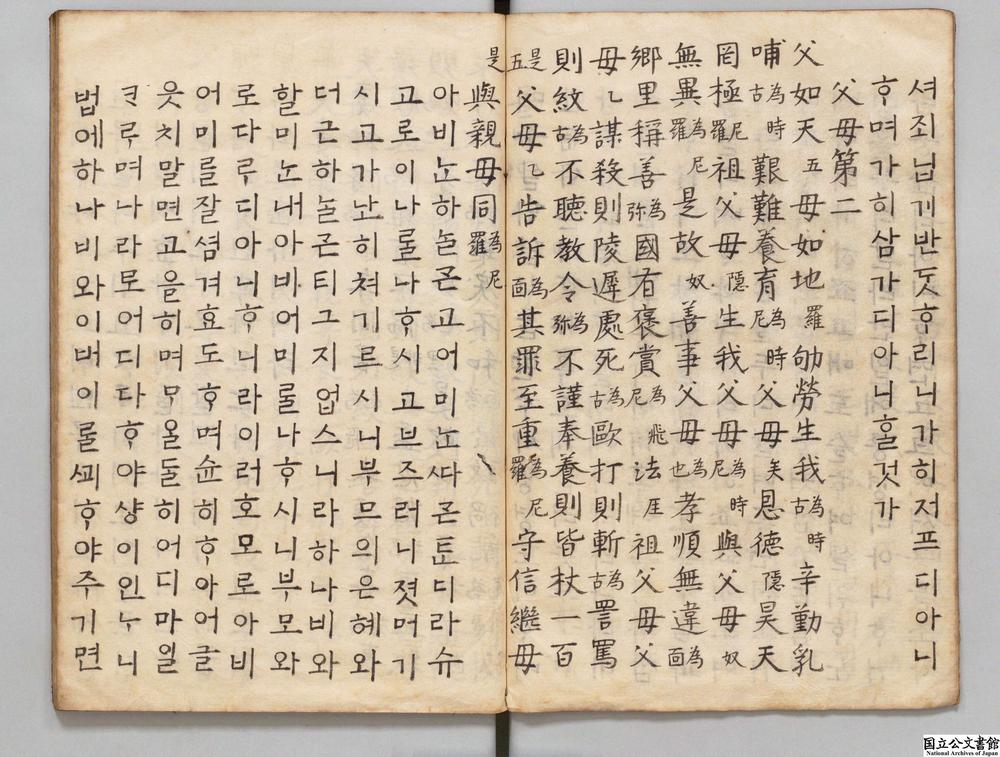 셔죄닙기반ᄃᆞᆺᄒᆞ리니가히저프디아니
ᄒᆞ며가히삼가디아니ᄒᆞᆯ것가
父母第二
父如天五母如地羅劬勞生我為古時辛勤乳
哺為古時艱難養育為尼時父母矣恩德隱昊天
罔極尼羅祖父母隱生我父母為尼時與父母奴
無異為尼羅是故奴善事父母為也孝順無違為面
鄉里稱善為弥國有褒賞為尼飛法厓祖父母父
母乙謀殺則陵遲處死為古歐打則斬為古詈罵
則紋為古不聽教令為弥不謹奉養則皆杖一百
是五父母乙告訴為面其罪至重為尼羅守信繼母
是與親母同為尼羅
아비ᄂᆞᆫ하ᄂᆞᆯᄀᆞᆮ고어미ᄂᆞᆫᄯᅡᄀᆞᆮᄐᆞᆫ디라슈
고로이나ᄅᆞᆯ나ᄒᆞ시고브즈러니졋머기
시고가난히쳐기르시니부므의은혜와
더근하ᄂᆞᆯᄀᆞᆮ티그지업스니라하나비와
할미ᄂᆞᆫ내아바어미ᄅᆞᆯ나ᄒᆞ시니부모와
로다ᄅᆞ디아니ᄒᆞ니라이러호모로아비
어미를잘셤겨효도ᄒᆞ며슌히ᄒᆞ아어글
읏치말면고을히며ᄆᆞᄋᆞᆯᄃᆞᆯ히어디마일
ᄏᆞᄅᆞ며나라로어디다ᄒᆞ야샹이인ᄂᆞ니
법에하나비와이버이ᄅᆞᆯᄭᅬᄒᆞ야주기면
国立公文書館
National Archives of Japan